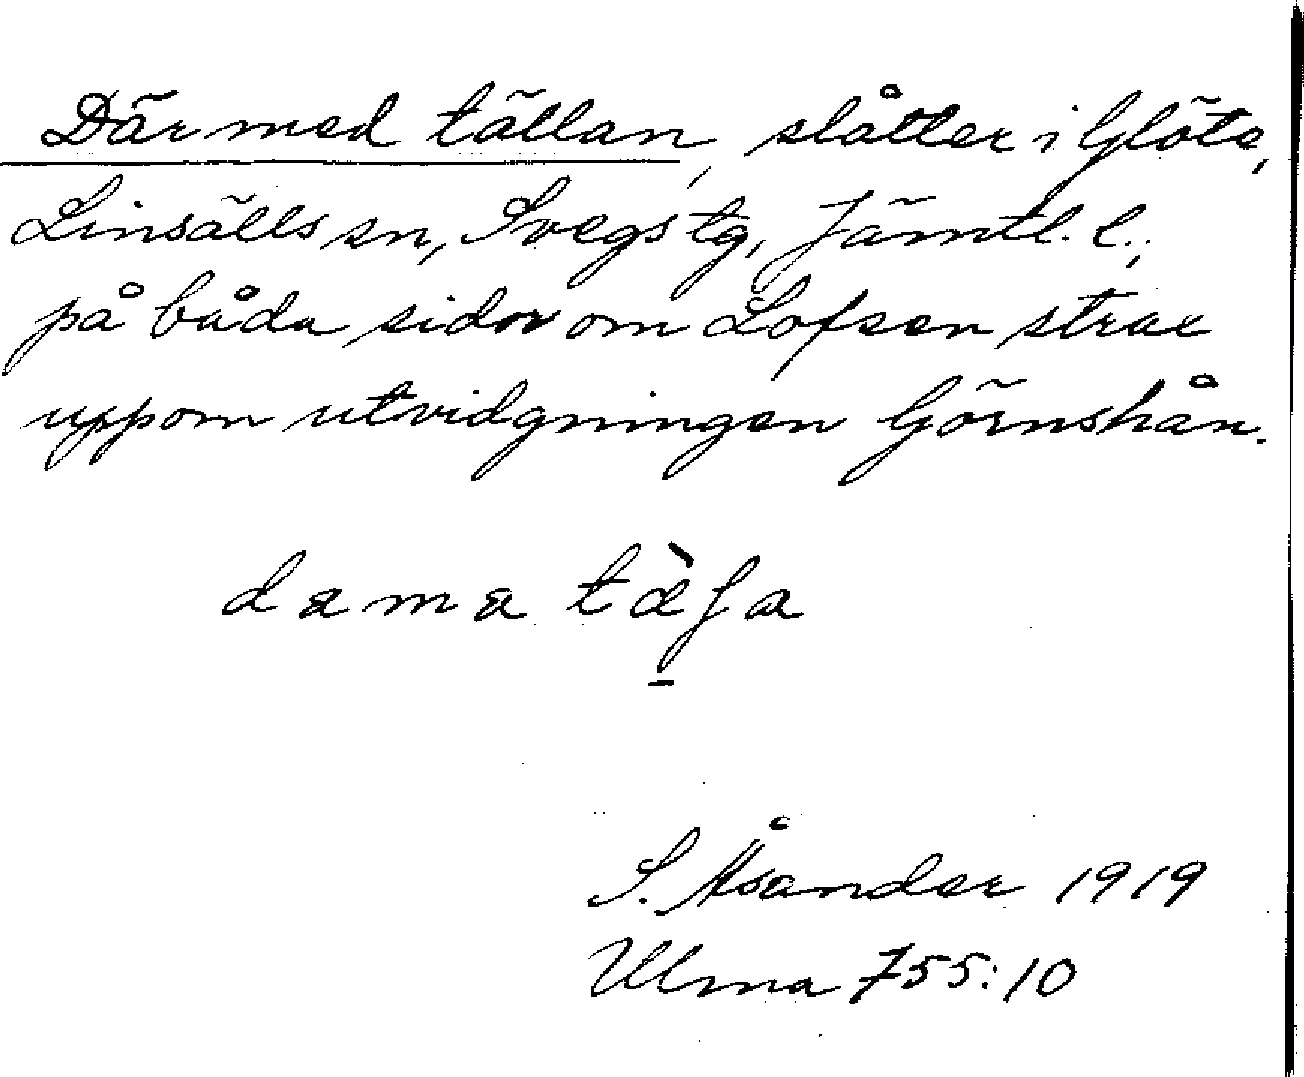 Där med tällan, slåtter i Glöte,
Linsälls sn, Svegs tg, Jämtl. l.;
på båda sidor om Lofsen strax
uppom utvidgningen Görnshån.
dama tæ̀ʃa
S. Åsander 1919
Ulma 755:10